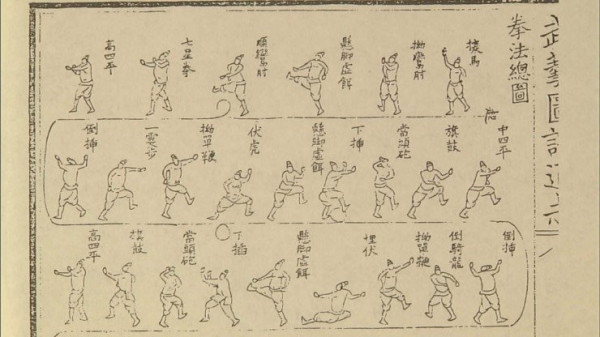 武藝圖譜通志
拳法總圖
探馬
拗鸞肘
懸脚虛餌
順鸞肘
七星拳
高四平
中四平
旗鼓
當頭砲
下揷
懸脚虛餌
伏虎
拗單鞭
一霎步
倒揷
倒揷
倒騎龍
拗單鞭
埋伏
懸脚虛餌
下揷
當頭砲
旗鼓
高四平